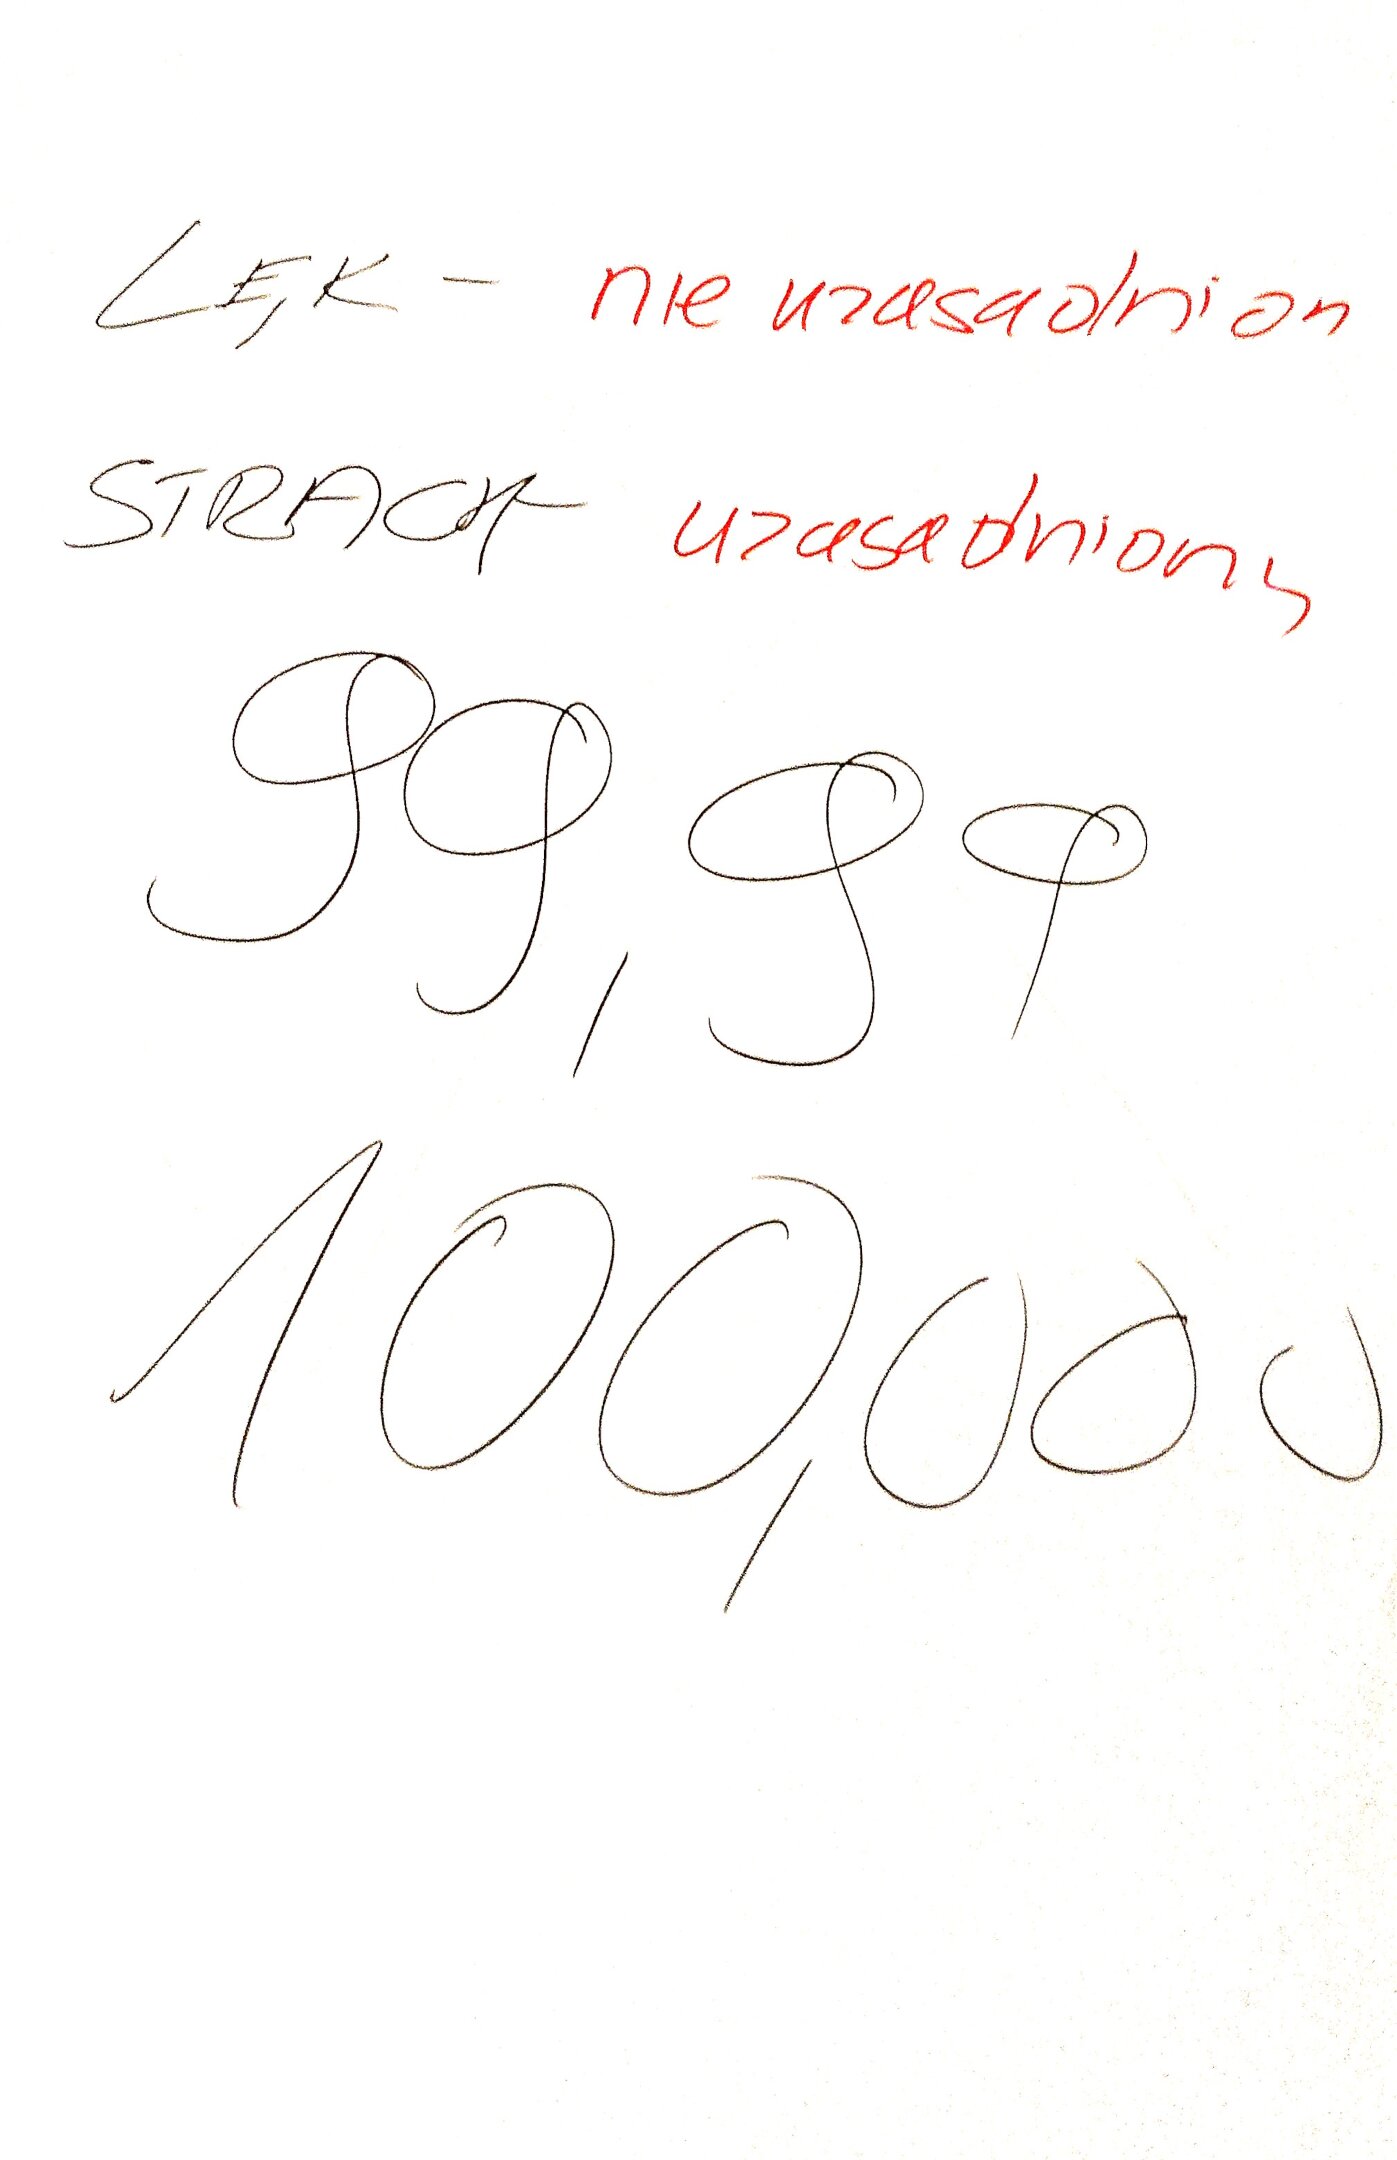 LĘK - nie uzasadnion
STRACH - uzasadniony
99,99
100,000